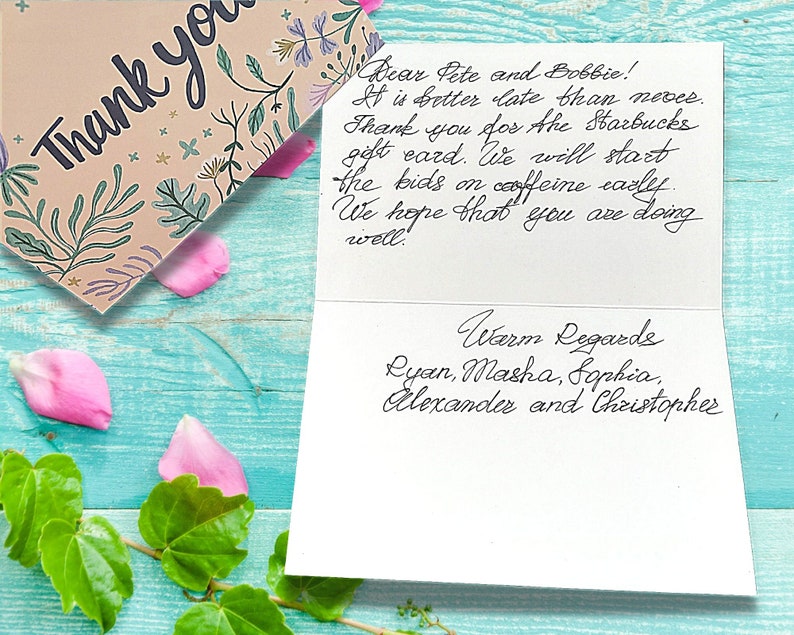 Thank you
Dear Pete and Bobbie!
It is better late than never.
Thank you for the Starbucks
gift card. We will start
the kids on caffeine early.
We hope that you are doing
well.
Warm Regards
Ryan, Masha, Sophia,
Alexander and Christopher